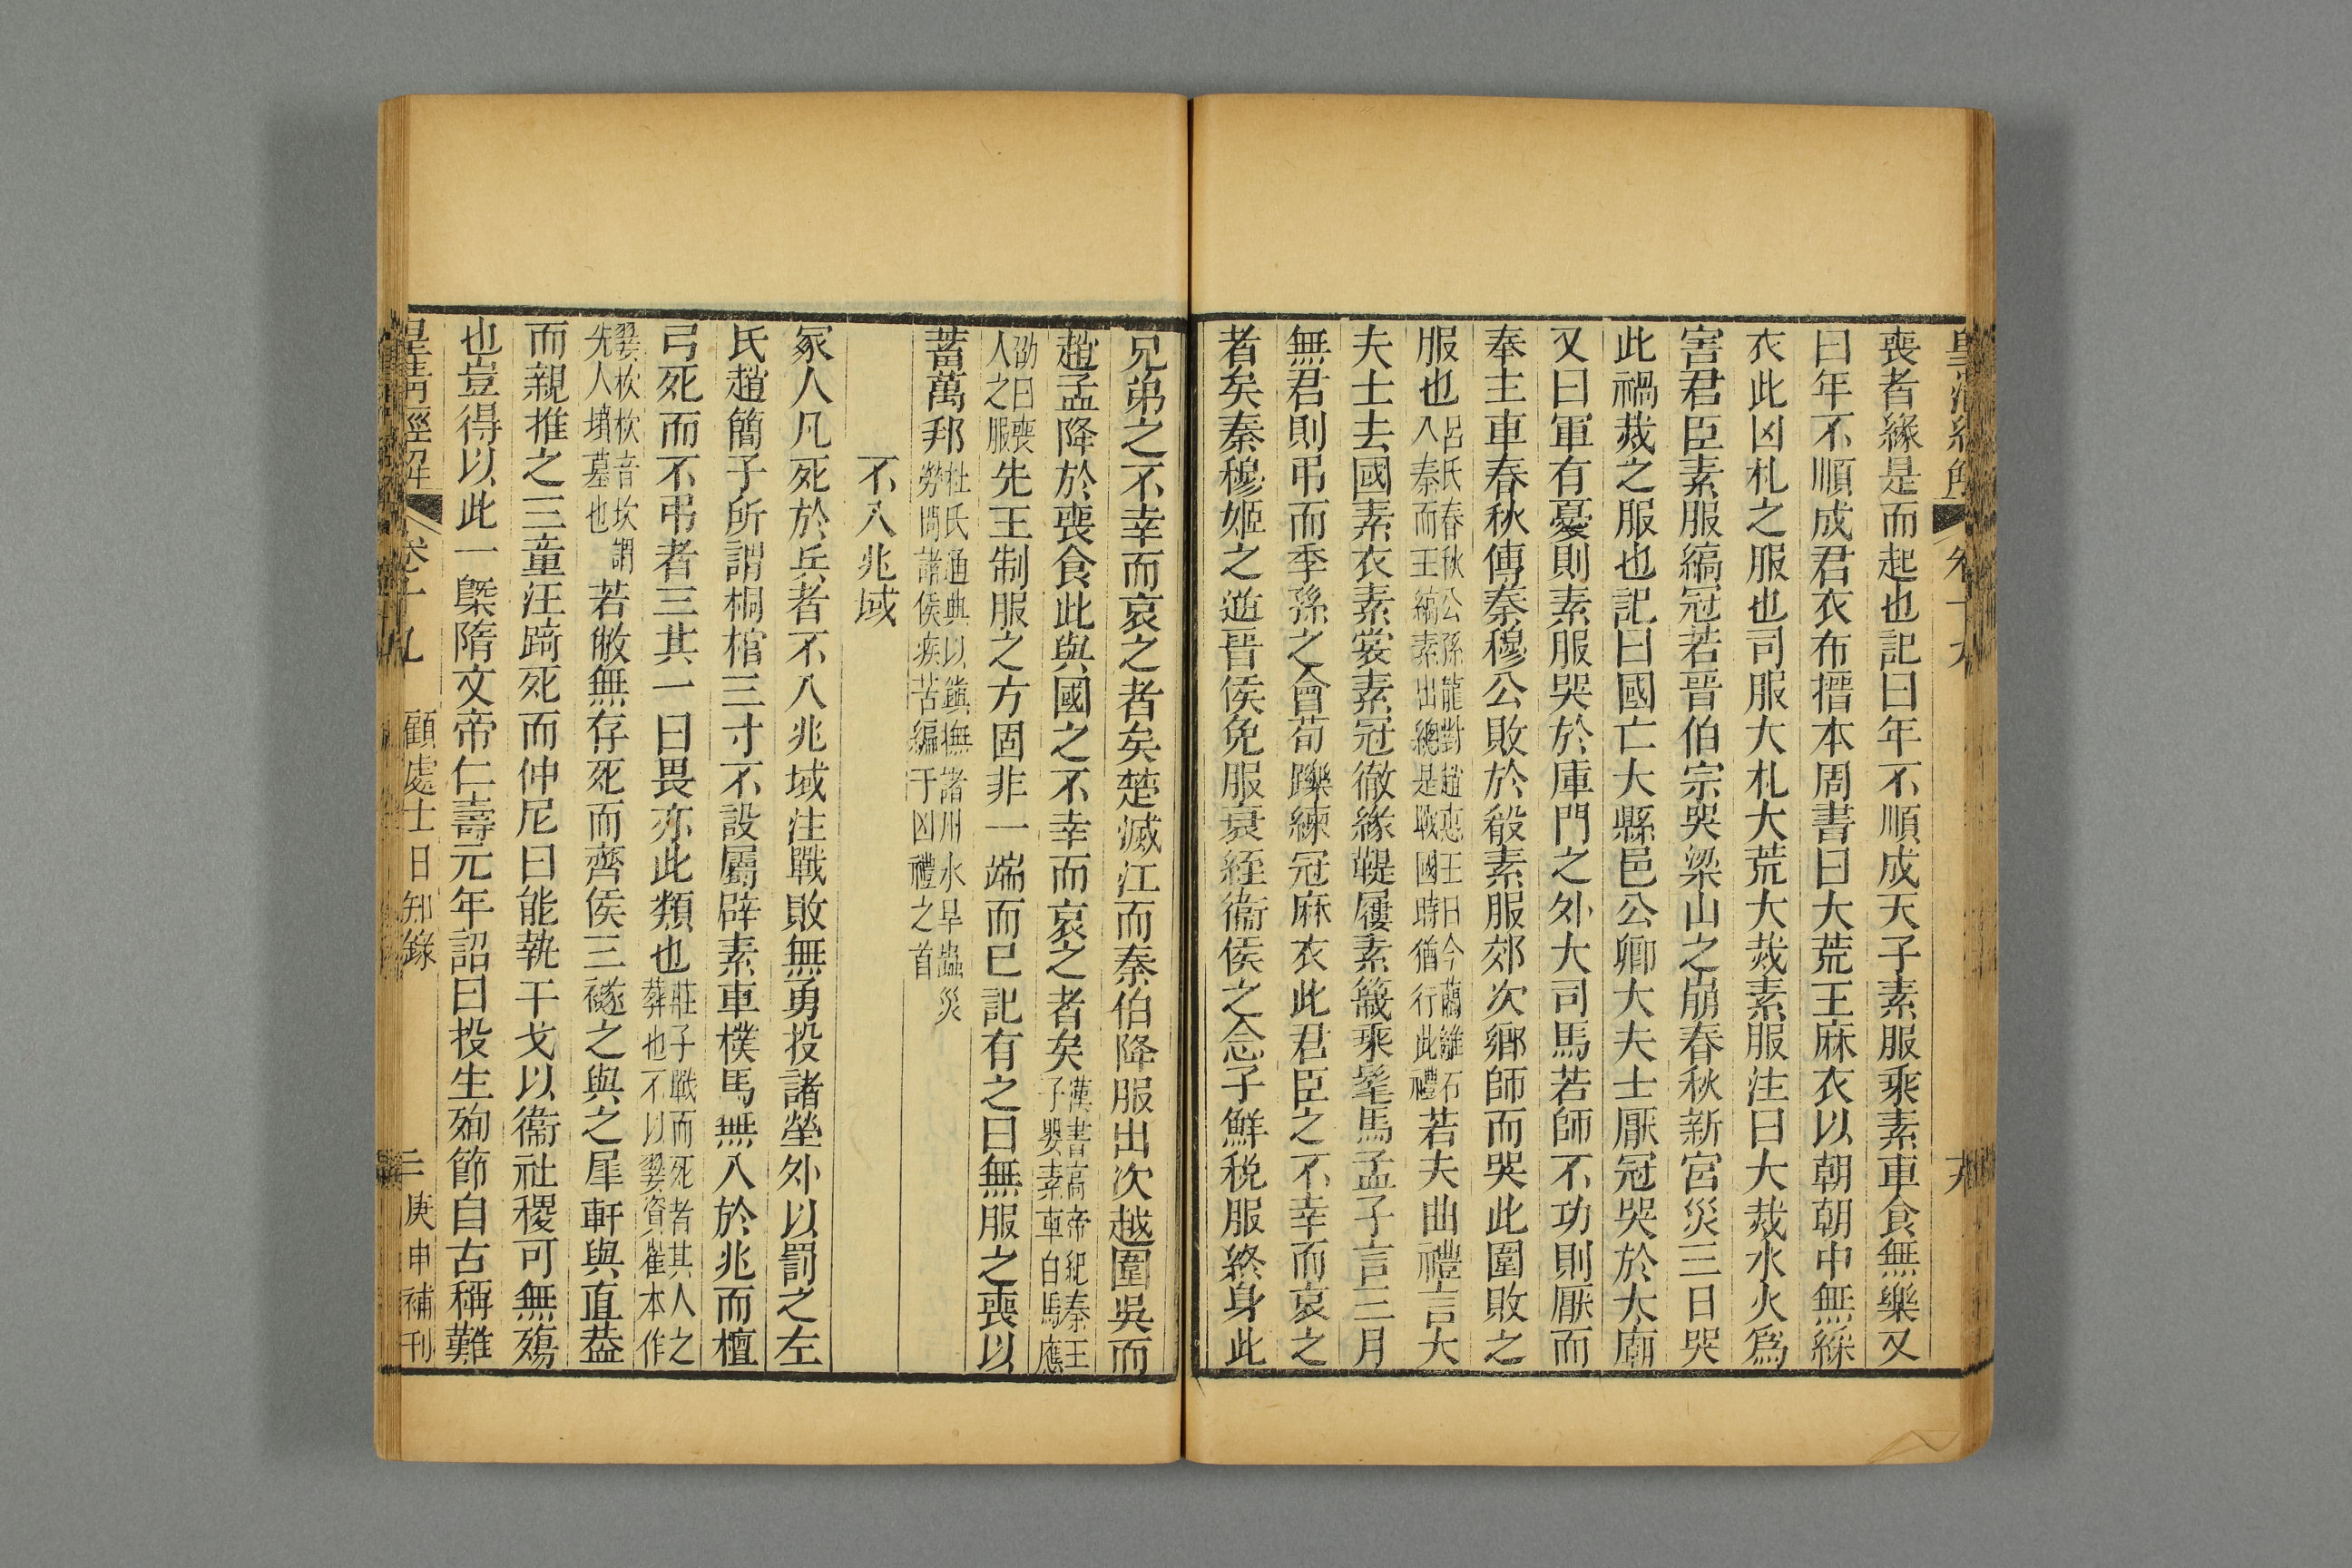 皇清經解 卷十九 九
喪者緣是而起也記曰年不順成天子素服乘素車食無樂又
曰年不順成君衣布搢本周書曰大荒王麻衣以朝朝中無綵
衣此凶札之服也司服大札大荒大烖素服注曰大烖水火爲
害君臣素服縞冠若晉伯宗哭梁山之崩春秋新宮災三日哭
此禍烖之服也記曰國亡大縣邑公卿大夫士厭冠哭於太廟
又曰軍有憂則素服哭於庫門之外大司馬若師不功則厭而
奉主車春秋傳秦穆公敗於殽素服郊次鄉師而哭此圍敗之
服也呂氏春秋公孫龍對趙惠王曰今藺離石入秦而王縞素出總是戰國時猶行此禮若夫曲禮言大
夫士去國素衣素裳素冠徹緣鞮屨素簚乘髦馬孟子言三月
無君則弔而季孫之會荀躒練冠麻衣此君臣之不幸而哀之
者矣秦穆姬之逆晉侯免服衰絰衞侯之念子鮮稅服終身此
兄弟之不幸而哀之者矣楚滅江而秦伯降服出次越圍吳而
趙孟降於喪食此與國之不幸而哀之者矣漢書高帝紀秦王子嬰素車白馬應
劭曰喪人之服先王制服之方固非一端而已記有之曰無服之喪以
蓄萬邦杜氏通典以鎮撫諸州水旱蟲災勞問諸侯疾苦編于凶禮之首
不入兆域
冢人凡死於兵者不入兆域注戰敗無勇投諸塋外以罰之左
氏趙簡子所謂桐棺三寸不設屬辟素車樸馬無入於兆而檀
弓死而不弔者三其一曰畏亦此類也莊子戰而死者其人之葬也不以翣資崔本作
翣杴杴音坎謂先人墳墓也若敝無存死而齊侯三襚之與之犀軒與直葢
而親推之三童汪踦死而仲尼曰能執干戈以衞社稷可無殤
也豈得以此一槩隋文帝仁壽元年詔曰投生殉節自古稱難
皇淸經解 卷十九 顧處士日知錄 二 庚申補刊